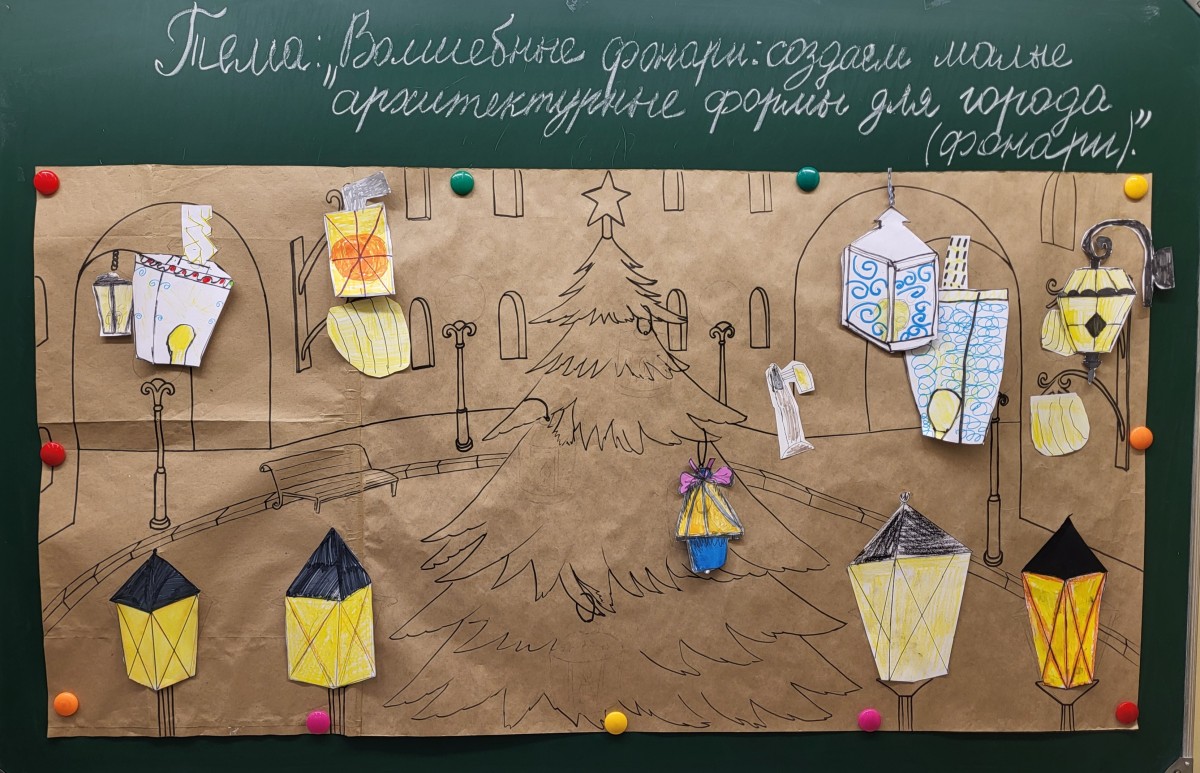 Тема: „Волшебные фонари: создаем малые
архитектурные формы для города
(фонари)."